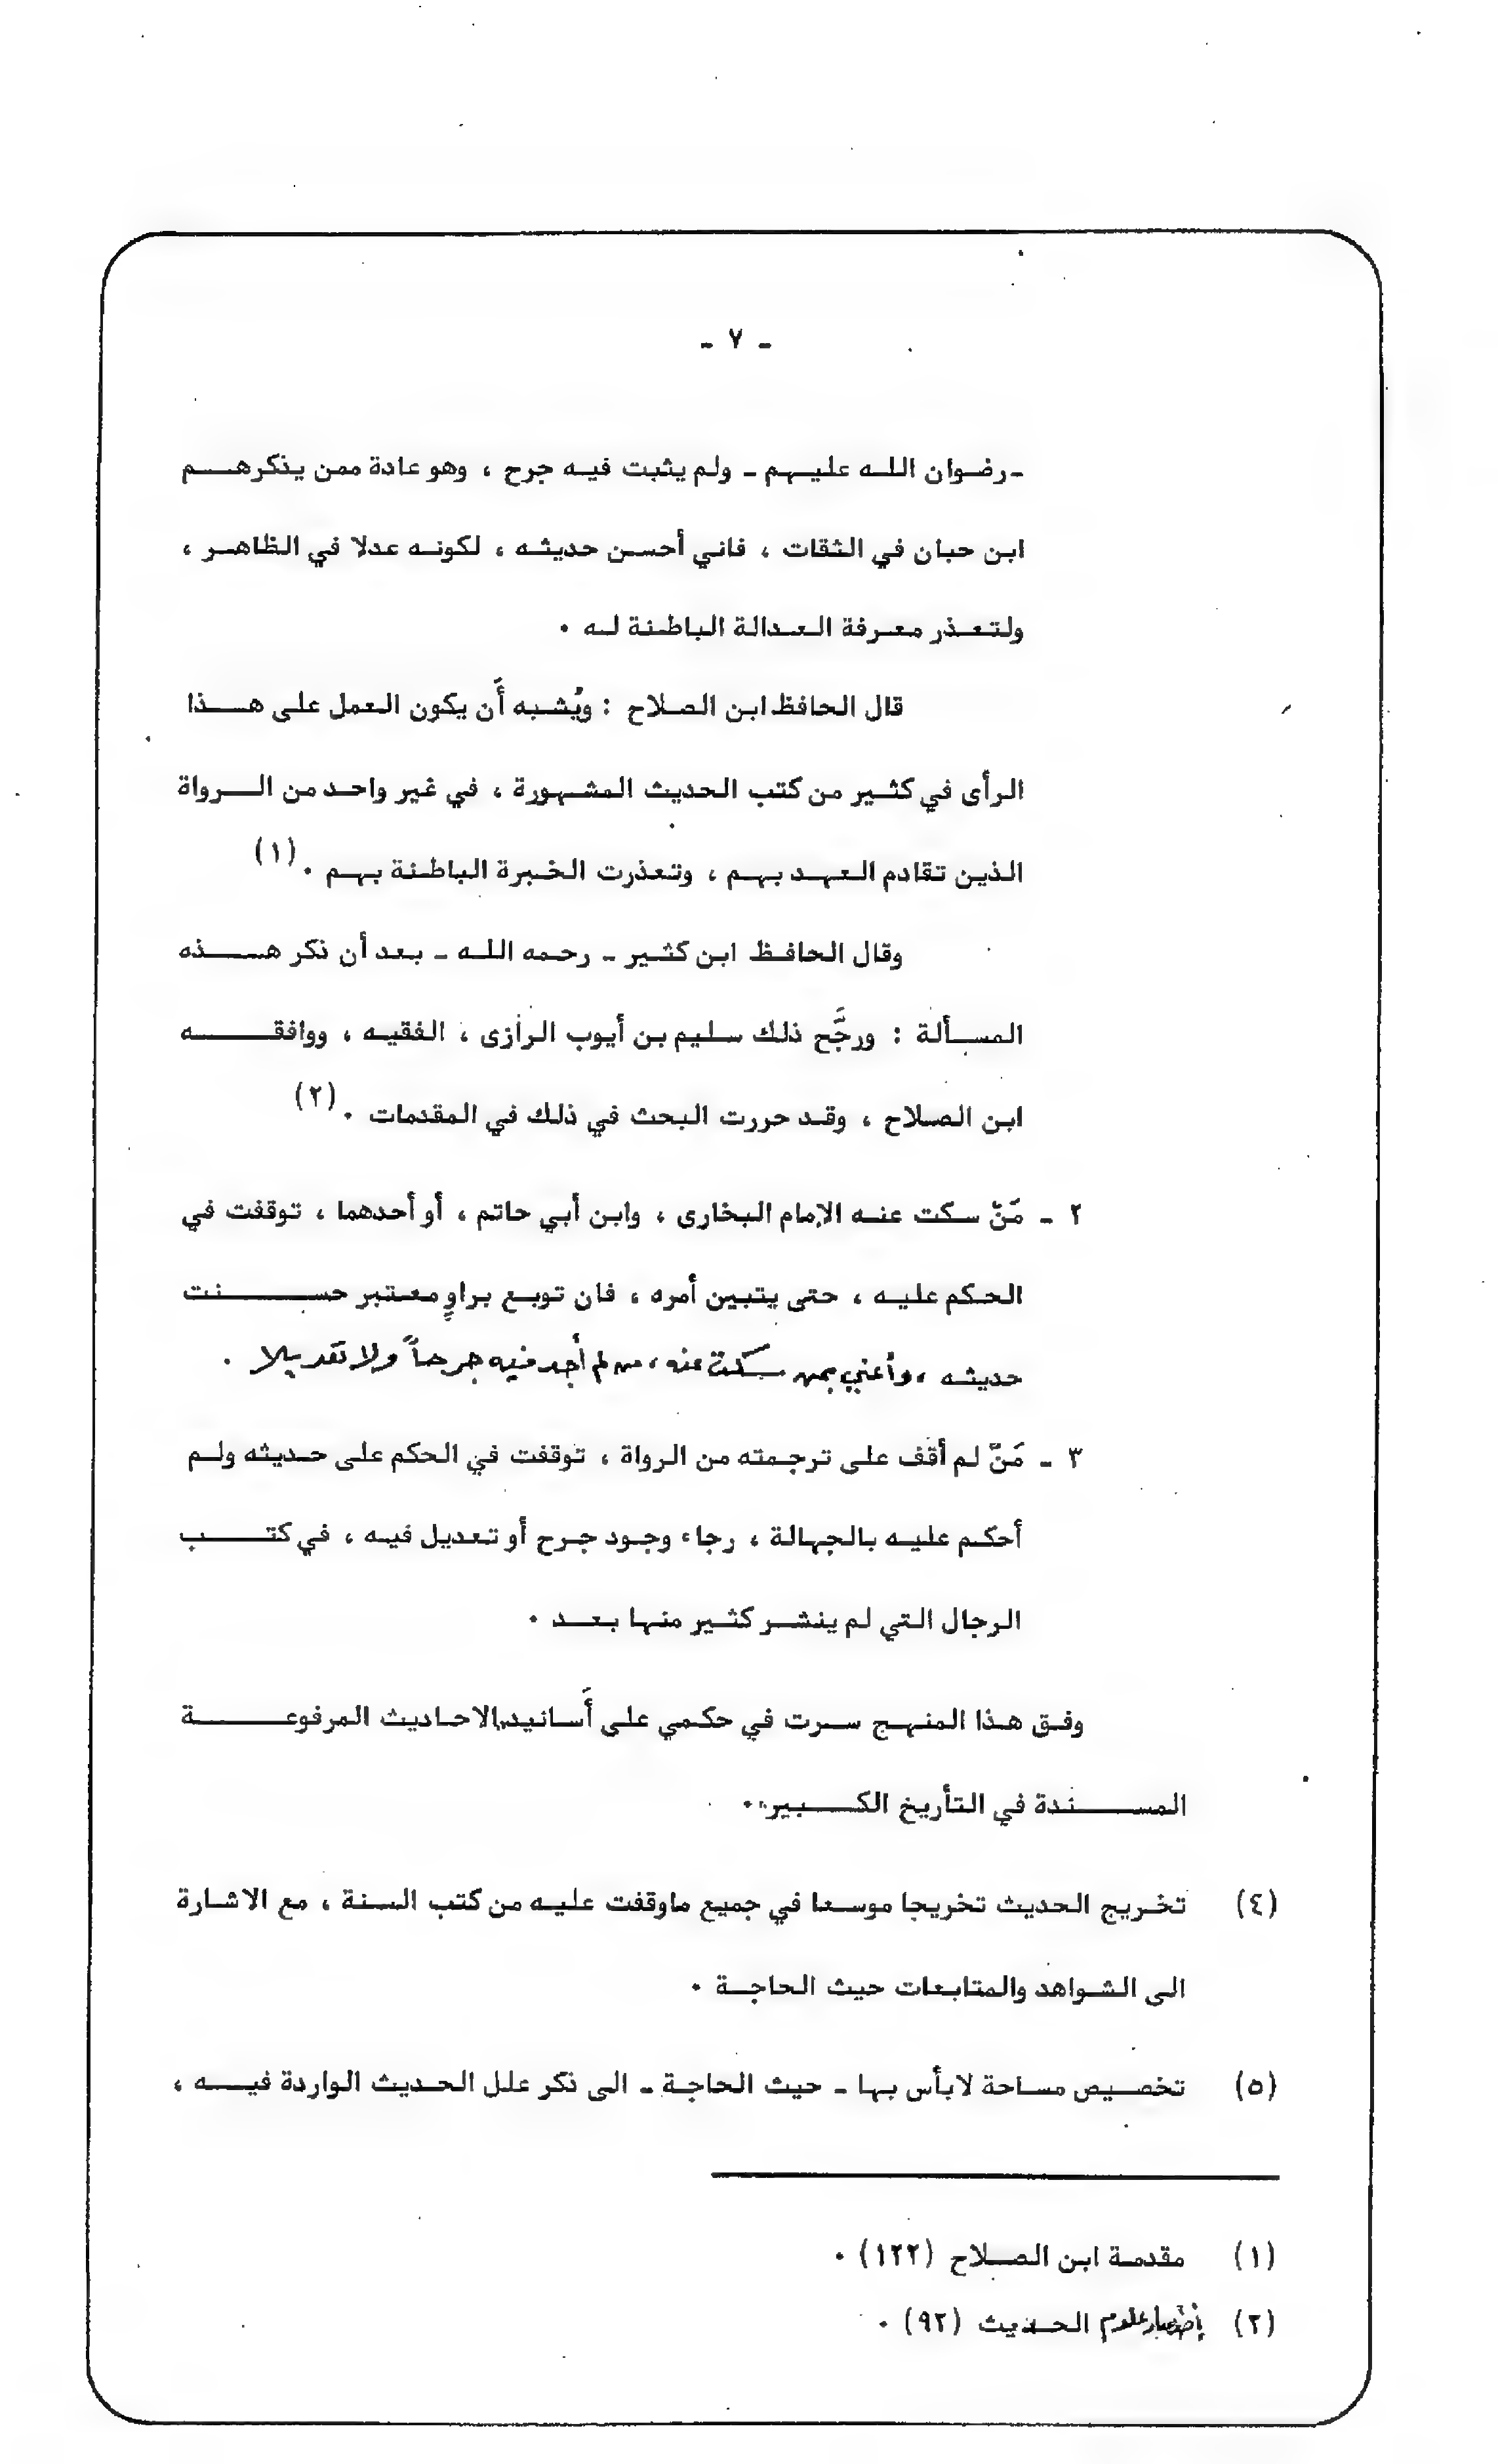 - ٧ -
- رضوان الله عليهم - ولم يثبت فيه جرح ، وهو عادة ممن يذكرهم
ابن حبان في الثقات ، فاني أحسن حديثه ، لكونه عدلا في الظاهر ،
ولتعذر معرفة العدالة الباطنة له ٠
قال الحافظ ابن الصلاح : ويُشبه أَن يكون العمل على هذا
الرأى في كثير من كتب الحديث المشهورة ، في غير واحد من الرواة
الذين تقادم العهد بهم ، وتعذرت الخبرة الباطنة بهم ٠ (١)
وقال الحافظ ابن كثير - رحمه الله - بعد أن ذكر هذه
المسألة : ورجَّح ذلك سليم بن أيوب الرازى ، الفقيه ، ووافقه
ابن الصلاح ، وقد حررت البحث في ذلك في المقدمات ٠ (٢)
٢ - مَنْ سكت عنه الإمام البخارى ، وابن أبي حاتم ، أو أحدهما ، توقفت في
الحكم عليه ، حتى يتبين أمره ، فان توبع براوٍ معتبر حسنت
حديثه ، وأعني بمن سكت عنه ، من لم أجد فيه جرحاً ولا تعديلا .
٣ - مَنْ لم أقف على ترجمته من الرواة ، توقفت في الحكم على حديثه ولم
أحكم عليه بالجهالة ، رجاء وجود جرح أو تعديل فيه ، في كتب
الرجال التي لم ينشر كثير منها بعد ٠
وفق هذا المنهج سرت في حكمي على أَسانيد الاحاديث المرفوعة
المسندة في التأريخ الكبير ٠
(٤) تخريج الحديث تخريجا موسعا في جميع ماوقفت عليه من كتب السنة ، مع الاشارة
الى الشواهد والمتابعات حيث الحاجة ٠
(٥) تخصيص مساحة لابأس بها - حيث الحاجة - الى ذكر علل الحديث الواردة فيه ،
(١) مقدمة ابن الصلاح (١٢٢) ٠
(٢) إختصار علوم الحديث (٩٢) ٠